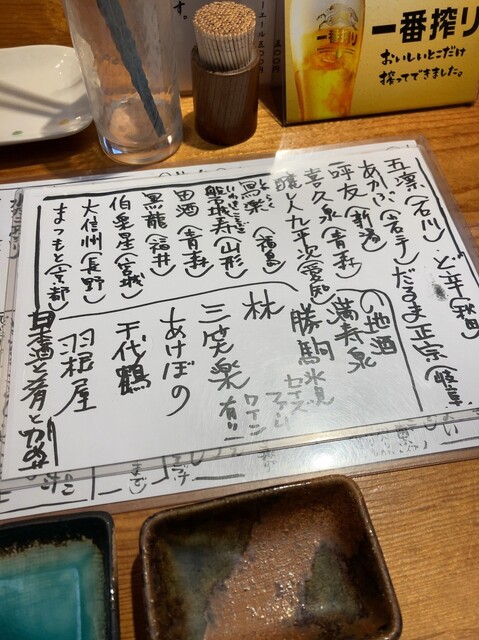 一番搾り
おいしいとこだけ
搾ってできました。
一番搾り
す。
五凛(石川)
ど辛(秋田)
あかぶ(岩手)
だるま正宗(岐阜)
呼友(新潟)
喜久泉(青森)
醸し人九平次(愛知)
寫楽(福島)
磐城寿(山形)
田酒(青森)
黒龍(福井)
伯楽星(宮城)
大信州(長野)
まつもと(京都)
の地酒
満寿泉
勝駒
林
三笑楽
あけぼの
千代鶴
羽根屋
氷見
セイズ
ファーム
ワイン
有り
日本酒と肴と